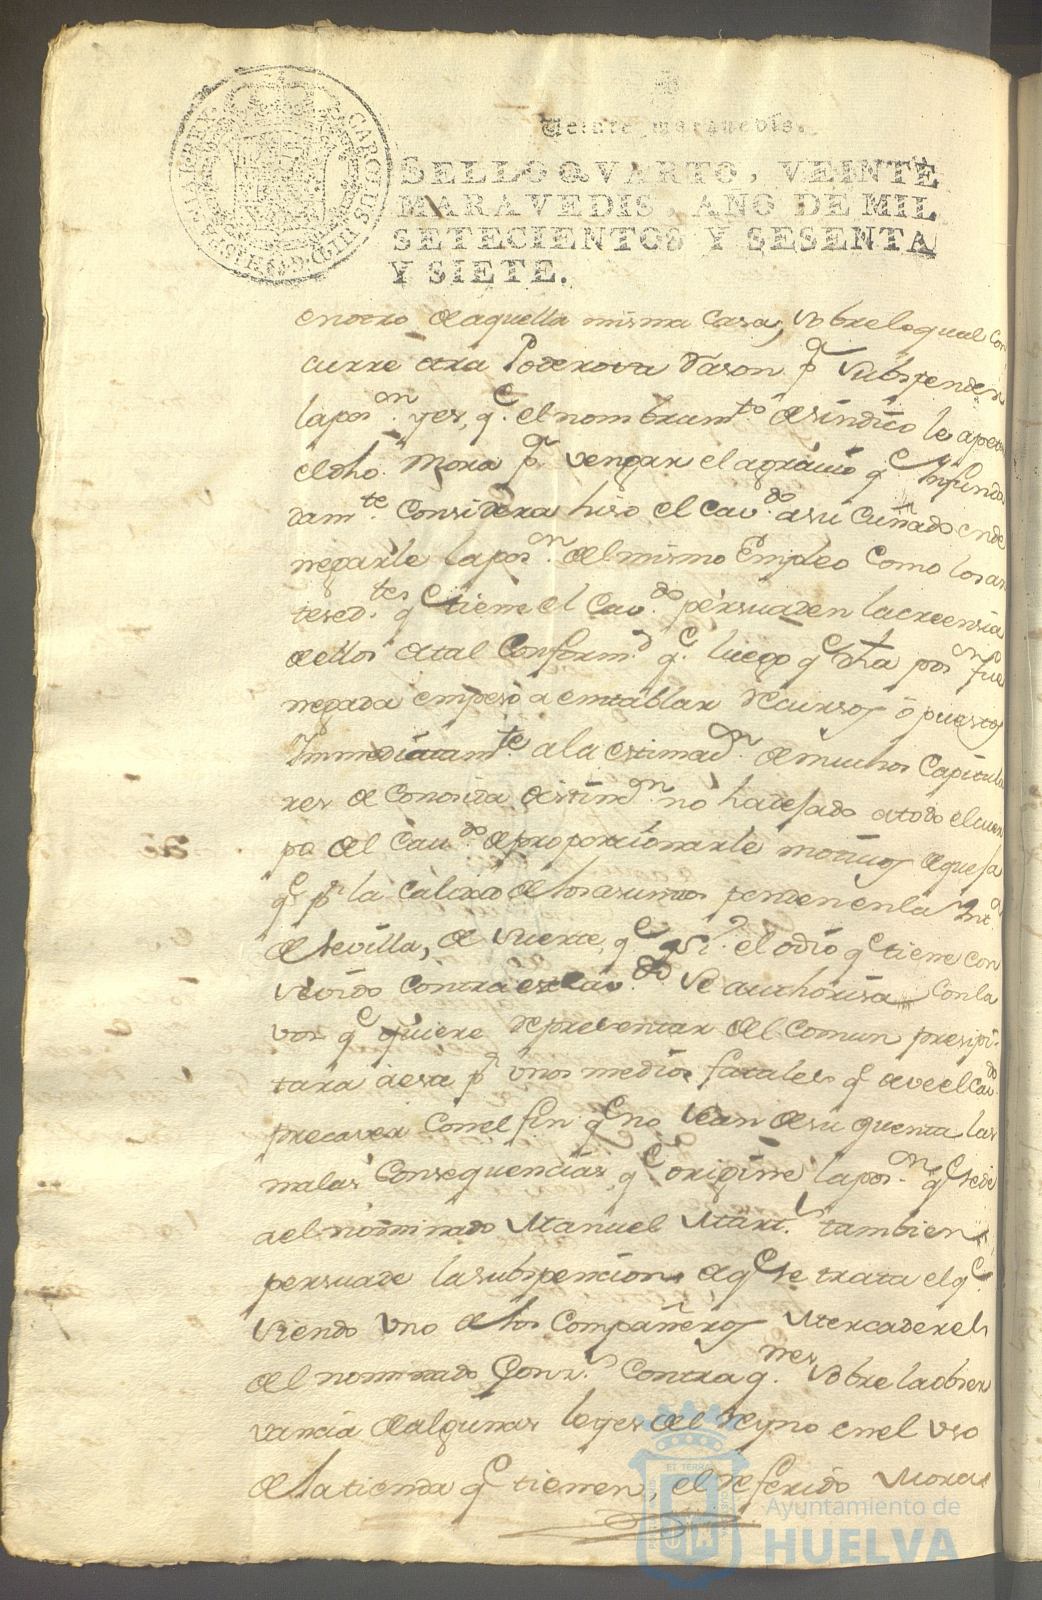 Veinte maravedis.
SELLO QVARTO, VEINTE
MARAVEDIS, AÑO DE MIL
SETECIENTOS Y SESENTA
Y SIETE.
CAROLUS III D. G. HISPANIAR REX
en otro de aquella misma Casa, sobre lo qual con
curre otra Poderosa rason pª. subspender
la poson. y es, qe. el nombramto. de sindico le apete
el dho. Mora pª. vengar el agravio qe. Infunda
damte. Considera hiso el Cavdo. a su Cuñado en de
negarle la poson. del mismo Empleo Como los an
tesedtes. qe tiene el Cavdo. persuaden la creensia
de ellos de tal Conformd. qe. luego qe dha poson fue
negada empesó a entablar recursos ó puestos
Immediatamte. a la estimaon. de muchos Capitula
res de Conosida distinon. no ha dejado a todo el cuer
po del Cavdo. de proporcionarle motivos de queja
qe pr la calidad de los asumtos penden en la Inta
de Sevilla, de suerte, qe si el odio qe tiene con
sevido contra este Cavdo. se authorisa con la
vos qe quiere representar del comun presipi
tara a esa pr unos medios fatales qe deve el Cavdo.
precaver con el fin qe no sean de su quenta las
malas Consequencias qe origine la poson. qe se dé
a el nominado Manuel Mart. tambien
persuade la subspencion de qe se trata el qe.
siendo uno de los Compañeros Mercaderes
del nominado Gonz. Contra qnes. sobre la obser
vancia de algunas leyes del Reyno en el uso
de la tienda qe tienen, el referido Mora
ET TERRAE
Ayuntamiento de
HUELVA